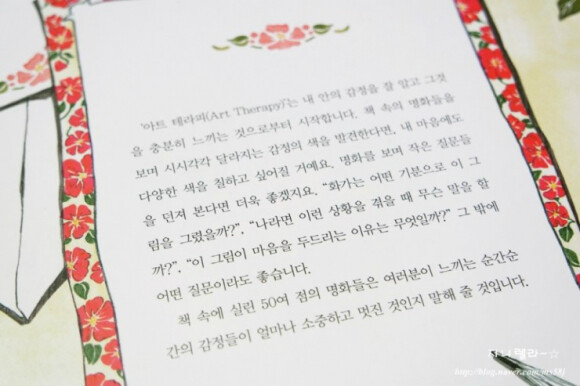 '아트 테라피(Art Therapy)'는 내 안의 감정을 잘 알고 그것
을 충분히 느끼는 것으로부터 시작합니다. 책 속의 명화들을
보며 시시각각 달라지는 감정의 색을 발견한다면, 내 마음에도
다양한 색을 칠하고 싶어질 거예요. 명화를 보며 작은 질문들
을 던져 본다면 더욱 좋겠지요. “화가는 어떤 기분으로 이 그
림을 그렸을까?”, “나라면 이런 상황을 겪을 때 무슨 말을 할
까?”, “이 그림이 마음을 두드리는 이유는 무엇일까?” 그 밖에
어떤 질문이라도 좋습니다.
책 속에 실린 50여 점의 명화들은 여러분이 느끼는 순간순
간의 감정들이 얼마나 소중하고 멋진 것인지 말해 줄 것입니다.